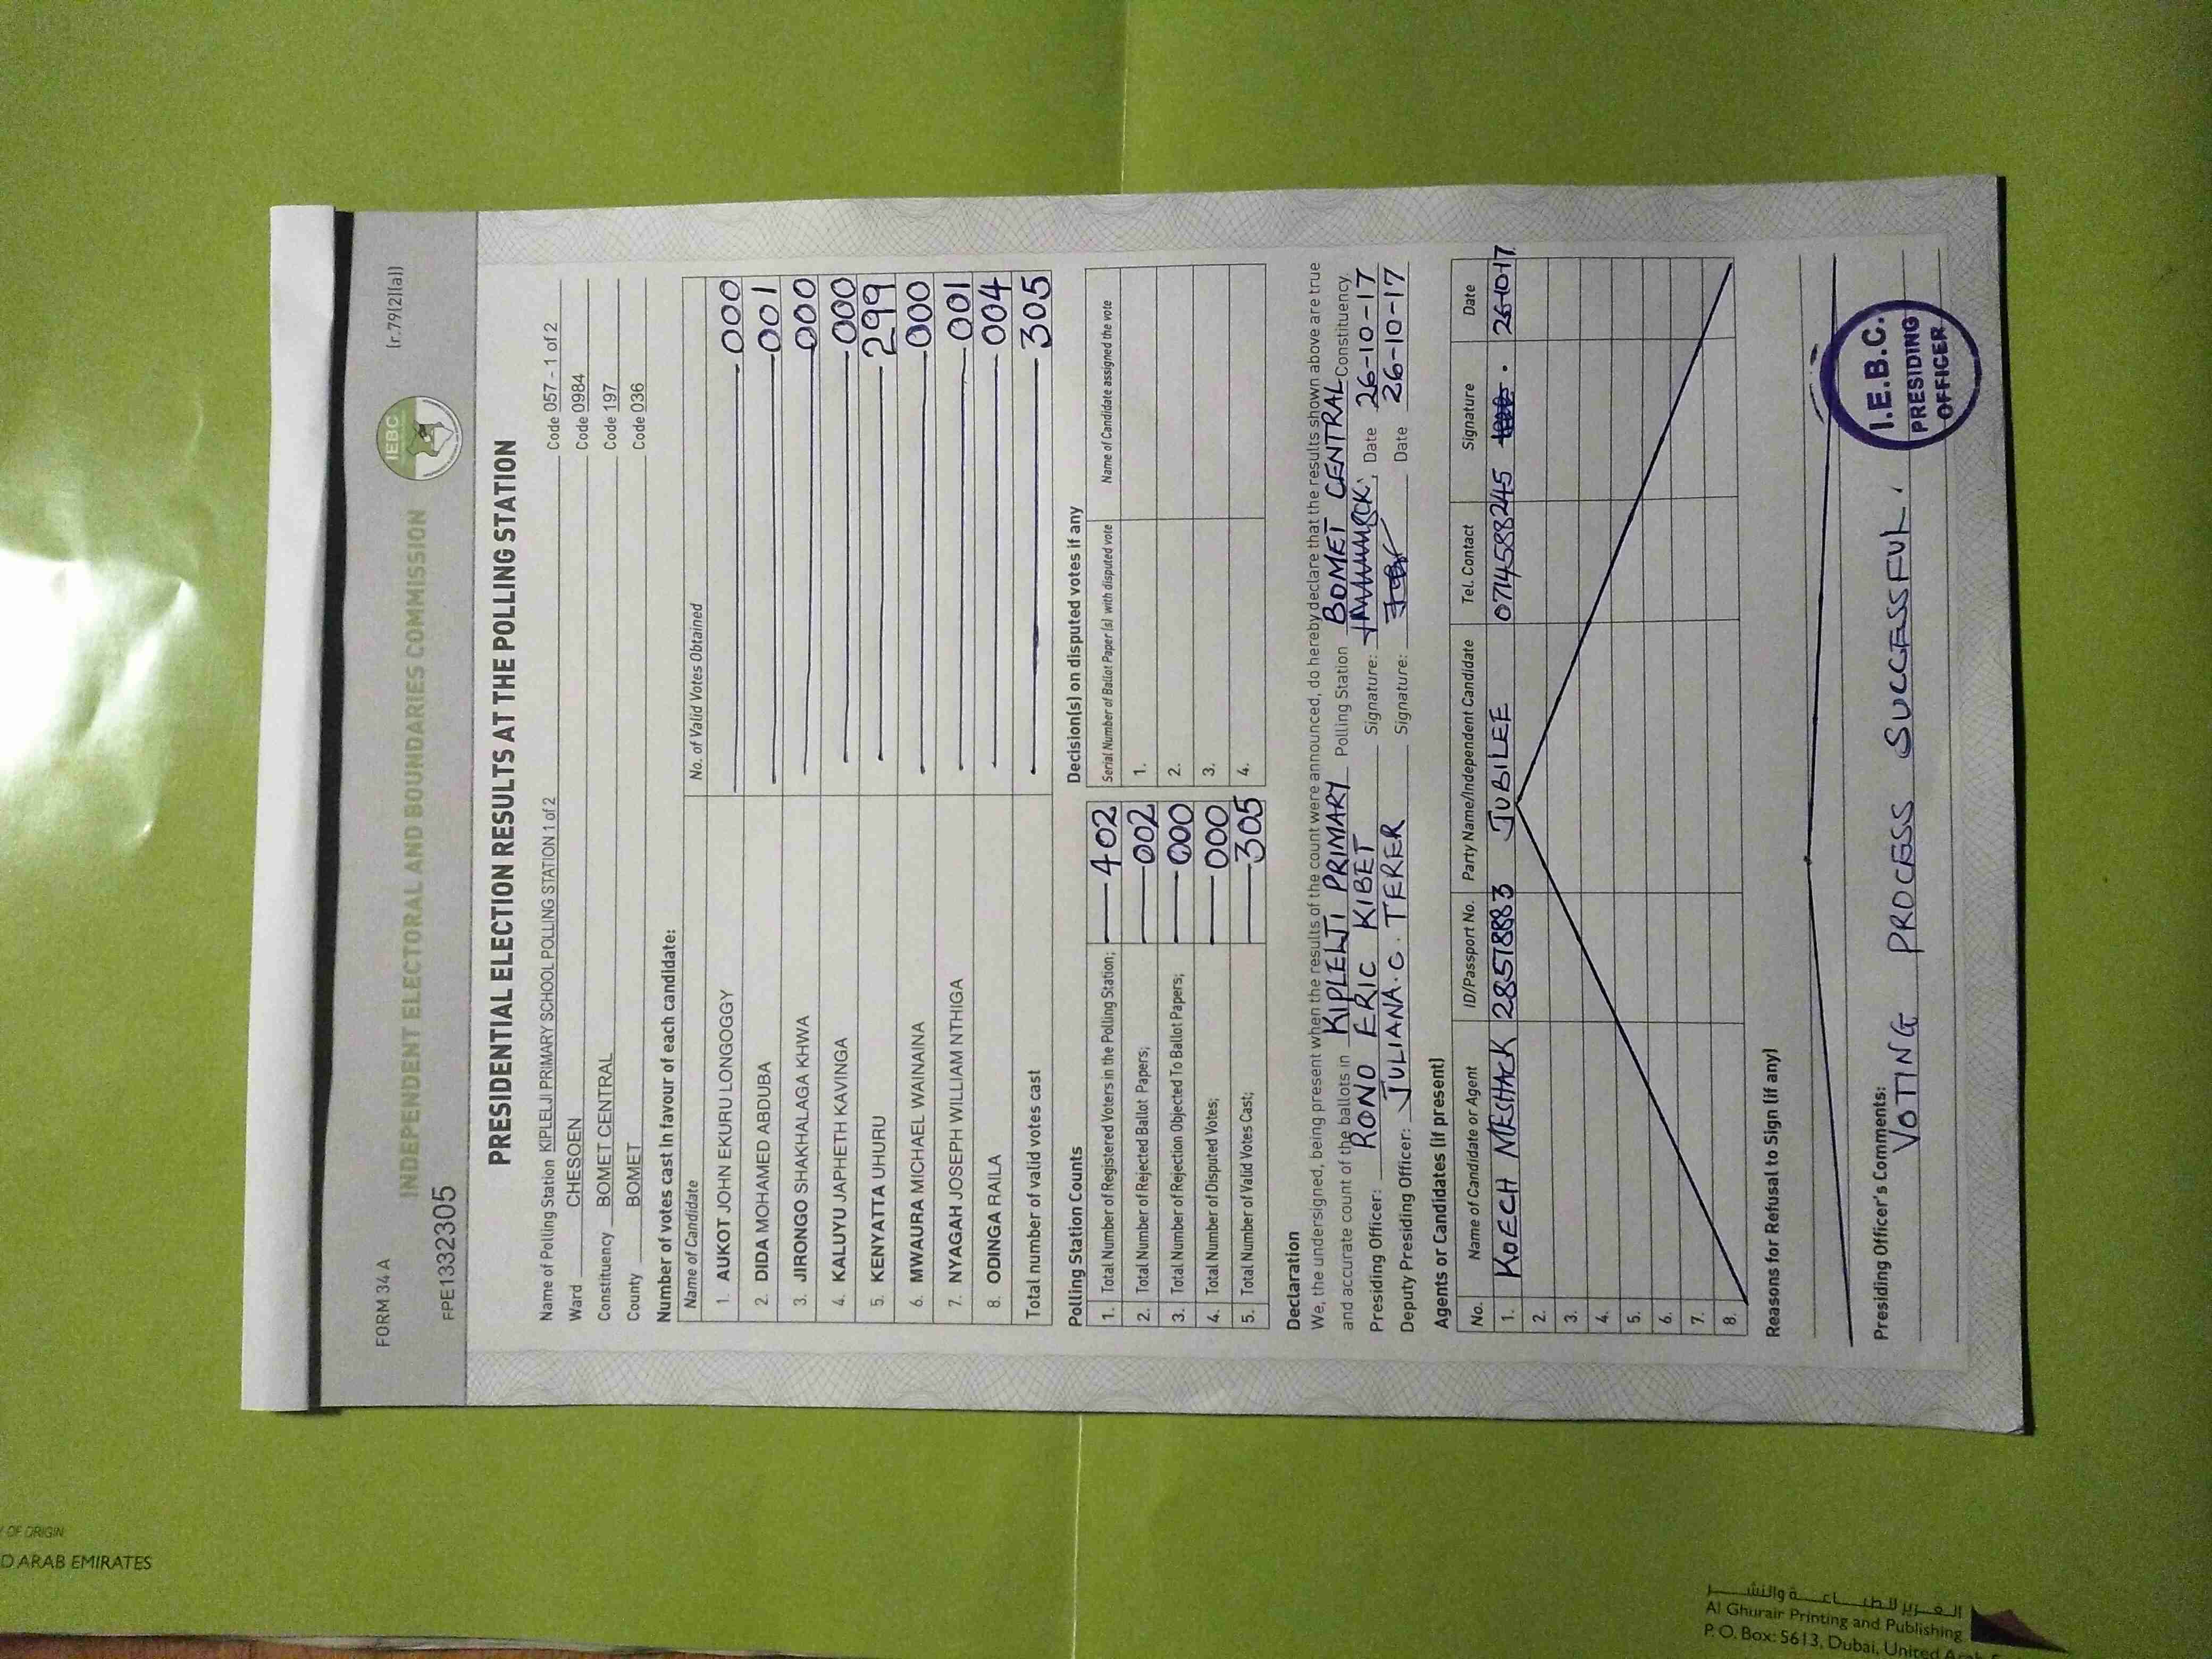 FORM 34 A
(r.79(2)(a))
IEBC
INDEPENDENT ELECTORAL AND BOUNDARIES COMMISSION
FPE1332305
PRESIDENTIAL ELECTION RESULTS AT THE POLLING STATION
Name of Polling Station KIPLELJI PRIMARY SCHOOL POLLING STATION 1 of 2 Code 057 - 1 of 2
Ward CHESOEN Code 0984
Constituency BOMET CENTRAL Code 197
County BOMET Code 036
Number of votes cast in favour of each candidate:
Name of Candidate No. of Valid Votes Obtained
1. AUKOT JOHN EKURU LONGOGGY 000
2. DIDA MOHAMED ABDUBA 001
3. JIRONGO SHAKHALAGA KHWA 000
4. KALUYU JAPHETH KAVINGA 000
5. KENYATTA UHURU 299
6. MWAURA MICHAEL WAINAINA 000
7. NYAGAH JOSEPH WILLIAM NTHIGA 001
8. ODINGA RAILA 004
Total number of valid votes cast 305
Polling Station Counts
1. Total Number of Registered Voters in the Polling Station; 402
2. Total Number of Rejected Ballot Papers; 002
3. Total Number of Rejection Objected To Ballot Papers; 000
4. Total Number of Disputed Votes; 000
5. Total Number of Valid Votes Cast; 305
Decision(s) on disputed votes if any
Serial Number of Ballot Paper (s) with disputed vote Name of Candidate assigned the vote
1.
2.
3.
4.
Declaration
We, the undersigned, being present when the results of the count were announced, do hereby declare that the results shown above are true
and accurate count of the ballots in KIPLELJI PRIMARY Polling Station BOMET CENTRAL Constituency.
Presiding Officer: RONO ERIC KIBET Signature: Date 26-10-17
Deputy Presiding Officer: JULIANA.C. TERER Signature: Date 26-10-17
Agents or Candidates (if present)
No. Name of Candidate or Agent ID/Passport No. Party Name/Independent Candidate Tel. Contact Signature Date
1. KOECH MESHACK 28578883 JUBILEE 0714588245 26-10-17
2.
3.
4.
5.
6.
7.
8.
Reasons for Refusal to Sign (if any)
Presiding Officer's Comments:
VOTING PROCESS SUCCESSFUL.
I.E.B.C.
PRESIDING
OFFICER
Y OF ORIGIN
D ARAB EMIRATES
الغرير للطباعة والنشر
Al Ghurair Printing and Publishing
P. O. Box: 5613, Dubai, United